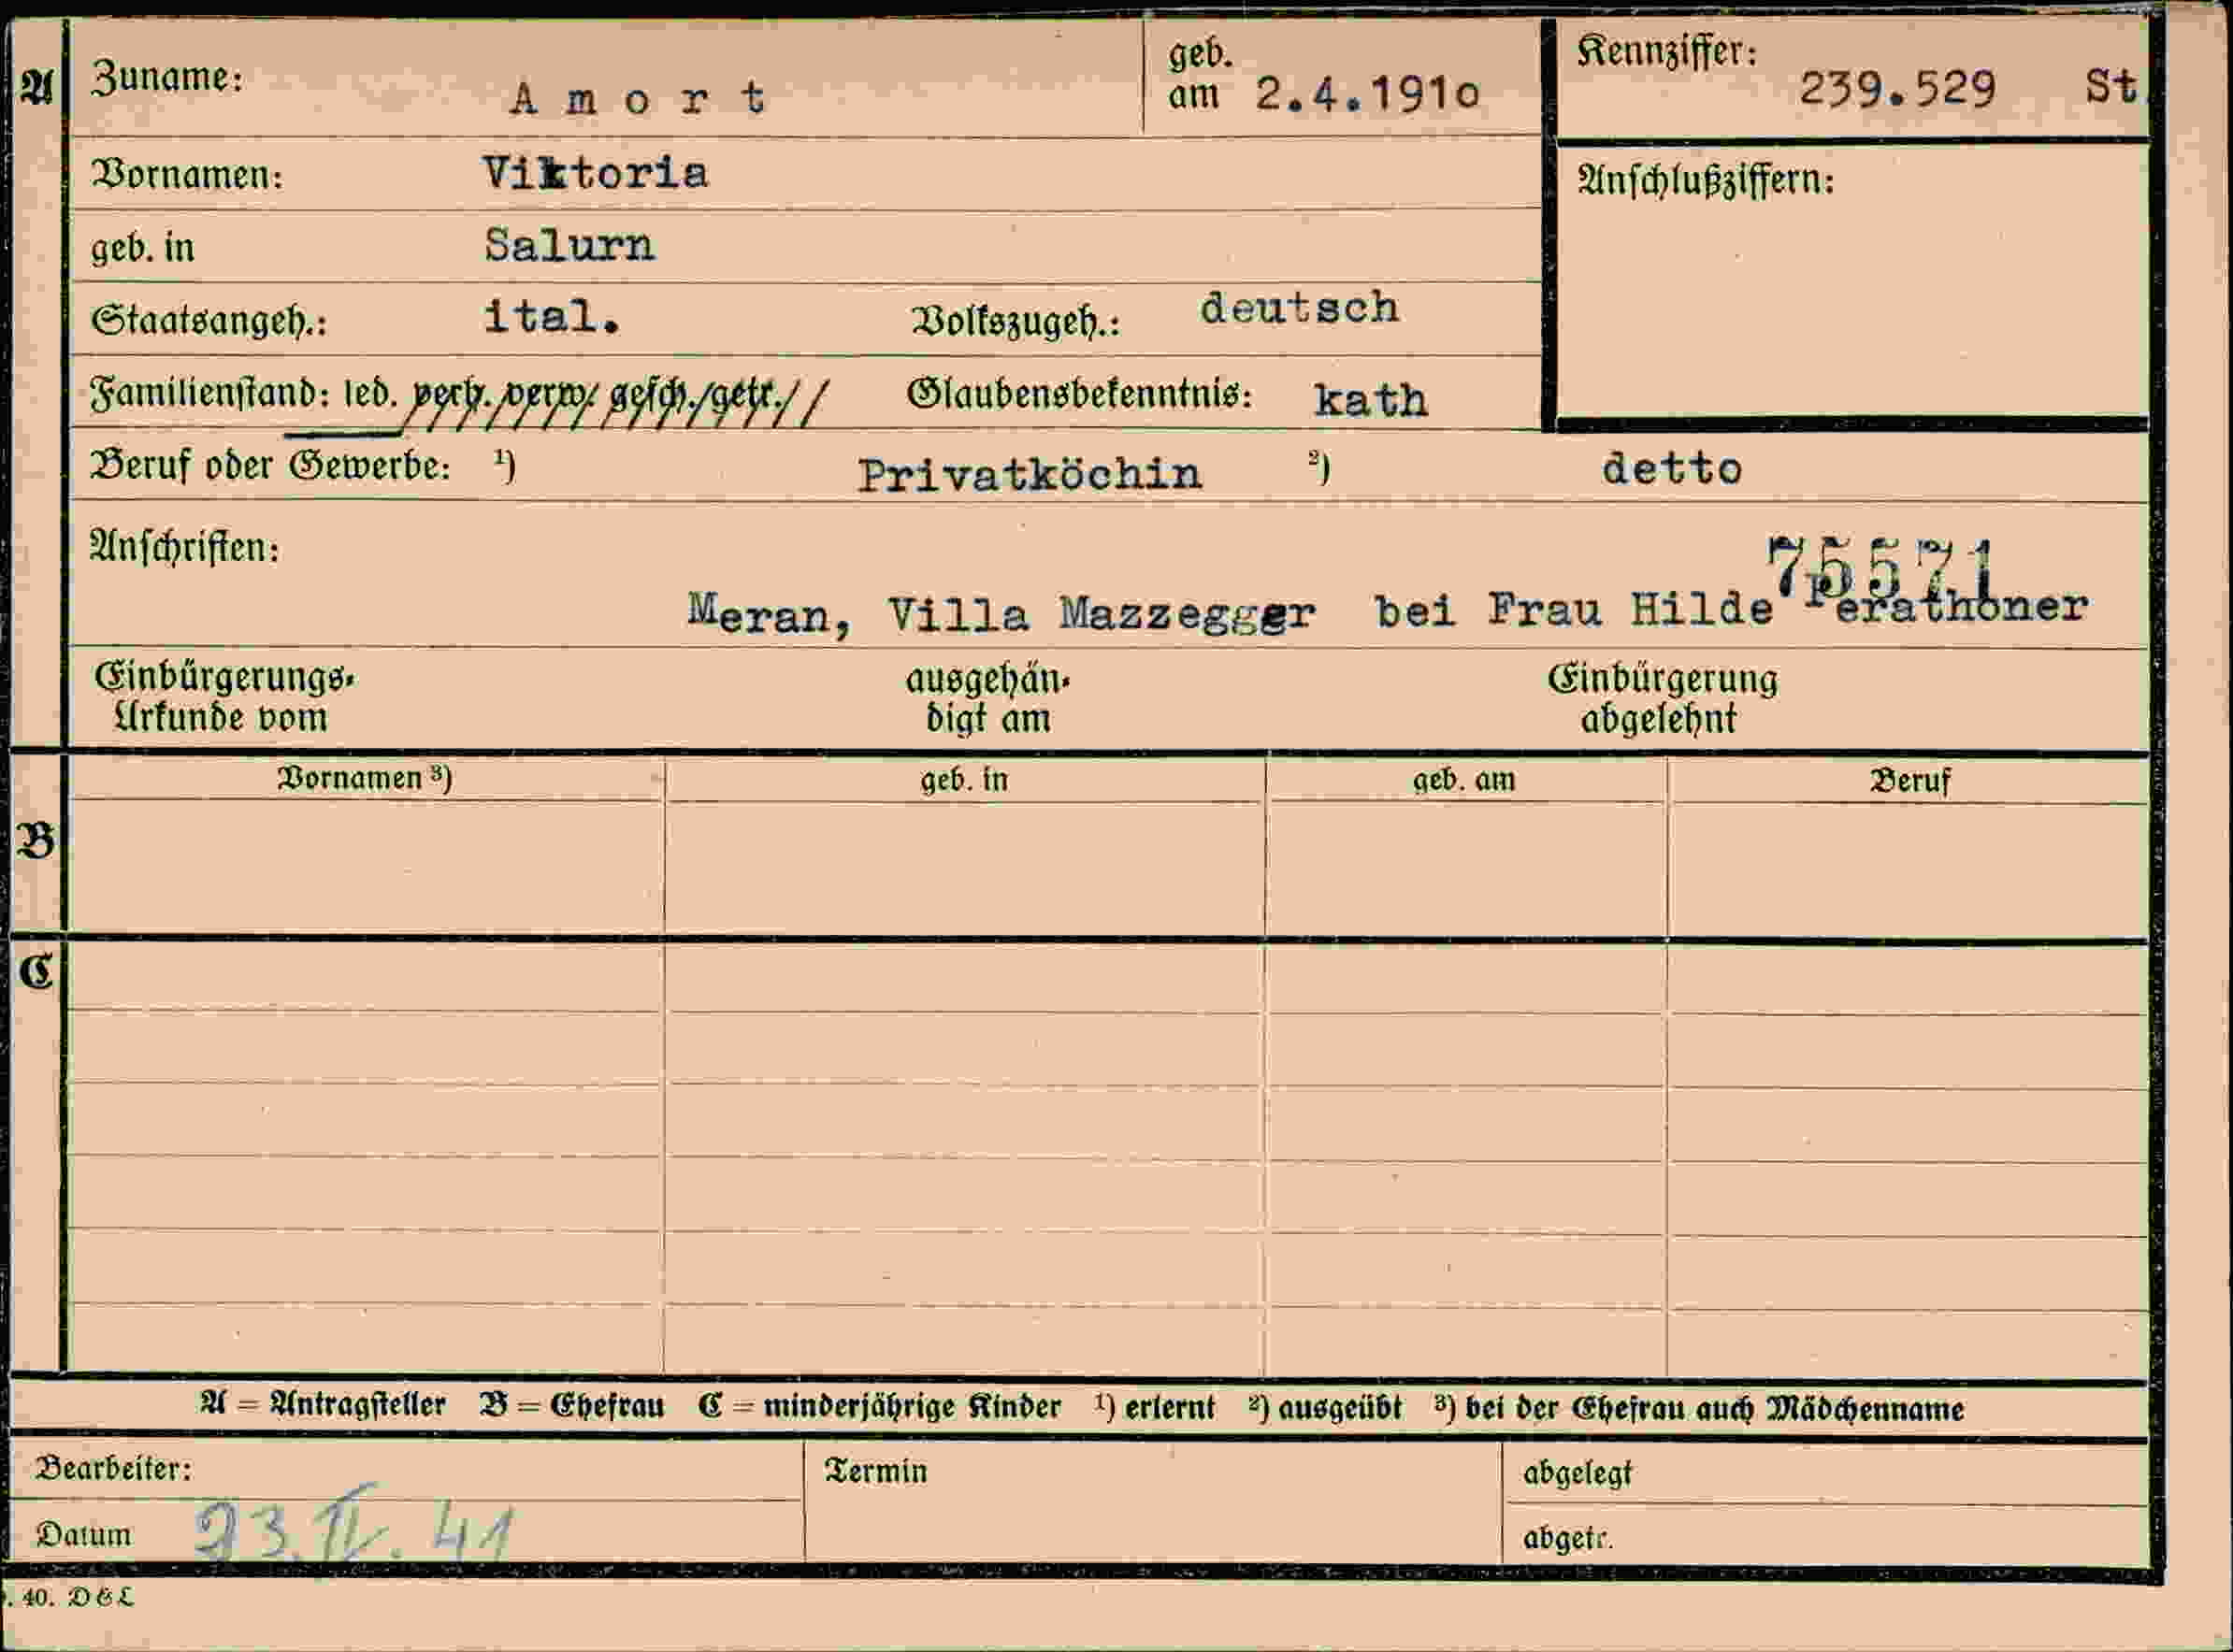 A Zuname: Amort geb. am 2.4.191o Kennziffer: 239.529 St
Vornamen: Viktoria Anschlußziffern:
geb. in Salurn
Staatsangeh.: ital. Volkszugeh.: deutsch
Familienstand: led. verh. verw. gesch. getr. Glaubensbekenntnis: kath
Beruf oder Gewerbe: ¹) Privatköchin ²) detto
Anschriften: 75571
Meran, Villa Mazzegger bei Frau Hilde Perathoner
Einbürgerungs-Urkunde vom ausgehändigt am Einbürgerung abgelehnt
Vornamen ³) geb. in geb. am Beruf
B
C
A = Antragsteller B = Ehefrau C = minderjährige Kinder ¹) erlernt ²) ausgeübt ³) bei der Ehefrau auch Mädchenname
Bearbeiter: Termin abgelegt
Datum 23. IV. 41 abgetr.
. 40. D&L